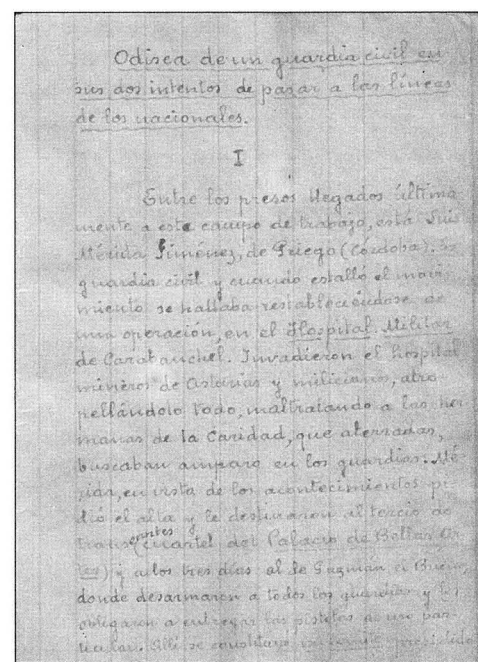 Odisea de un guardia civil en
sus dos intentos de pasar a las líneas
de los nacionales.
I
Entre los presos llegados última
mente a este campo de trabajo, está Luis
Mérida Jiménez, de Priego (Córdoba). Es
guardia civil y cuando estalló el movi
miento se hallaba restableciéndose de
una operación, en el Hospital Militar
de Carabanchel. Invadieron el hospital
mineros de Asturias y milicianos, atro
pellándolo todo, maltratando a las her
manas de la Caridad, que aterradas,
buscaban amparo en los guardias. Mé
rida, en vista de los acontecimientos pi
dió el alta y le destinaron al tercio de
(cuartel del Palacio de Bellas Ar
tes) y a los tres días al de Guzmán el Bueno,
donde desarmaron a todos los guardias y les
obligaron a entregar las pistolas de uso par
ticular. Allí se constituyó un